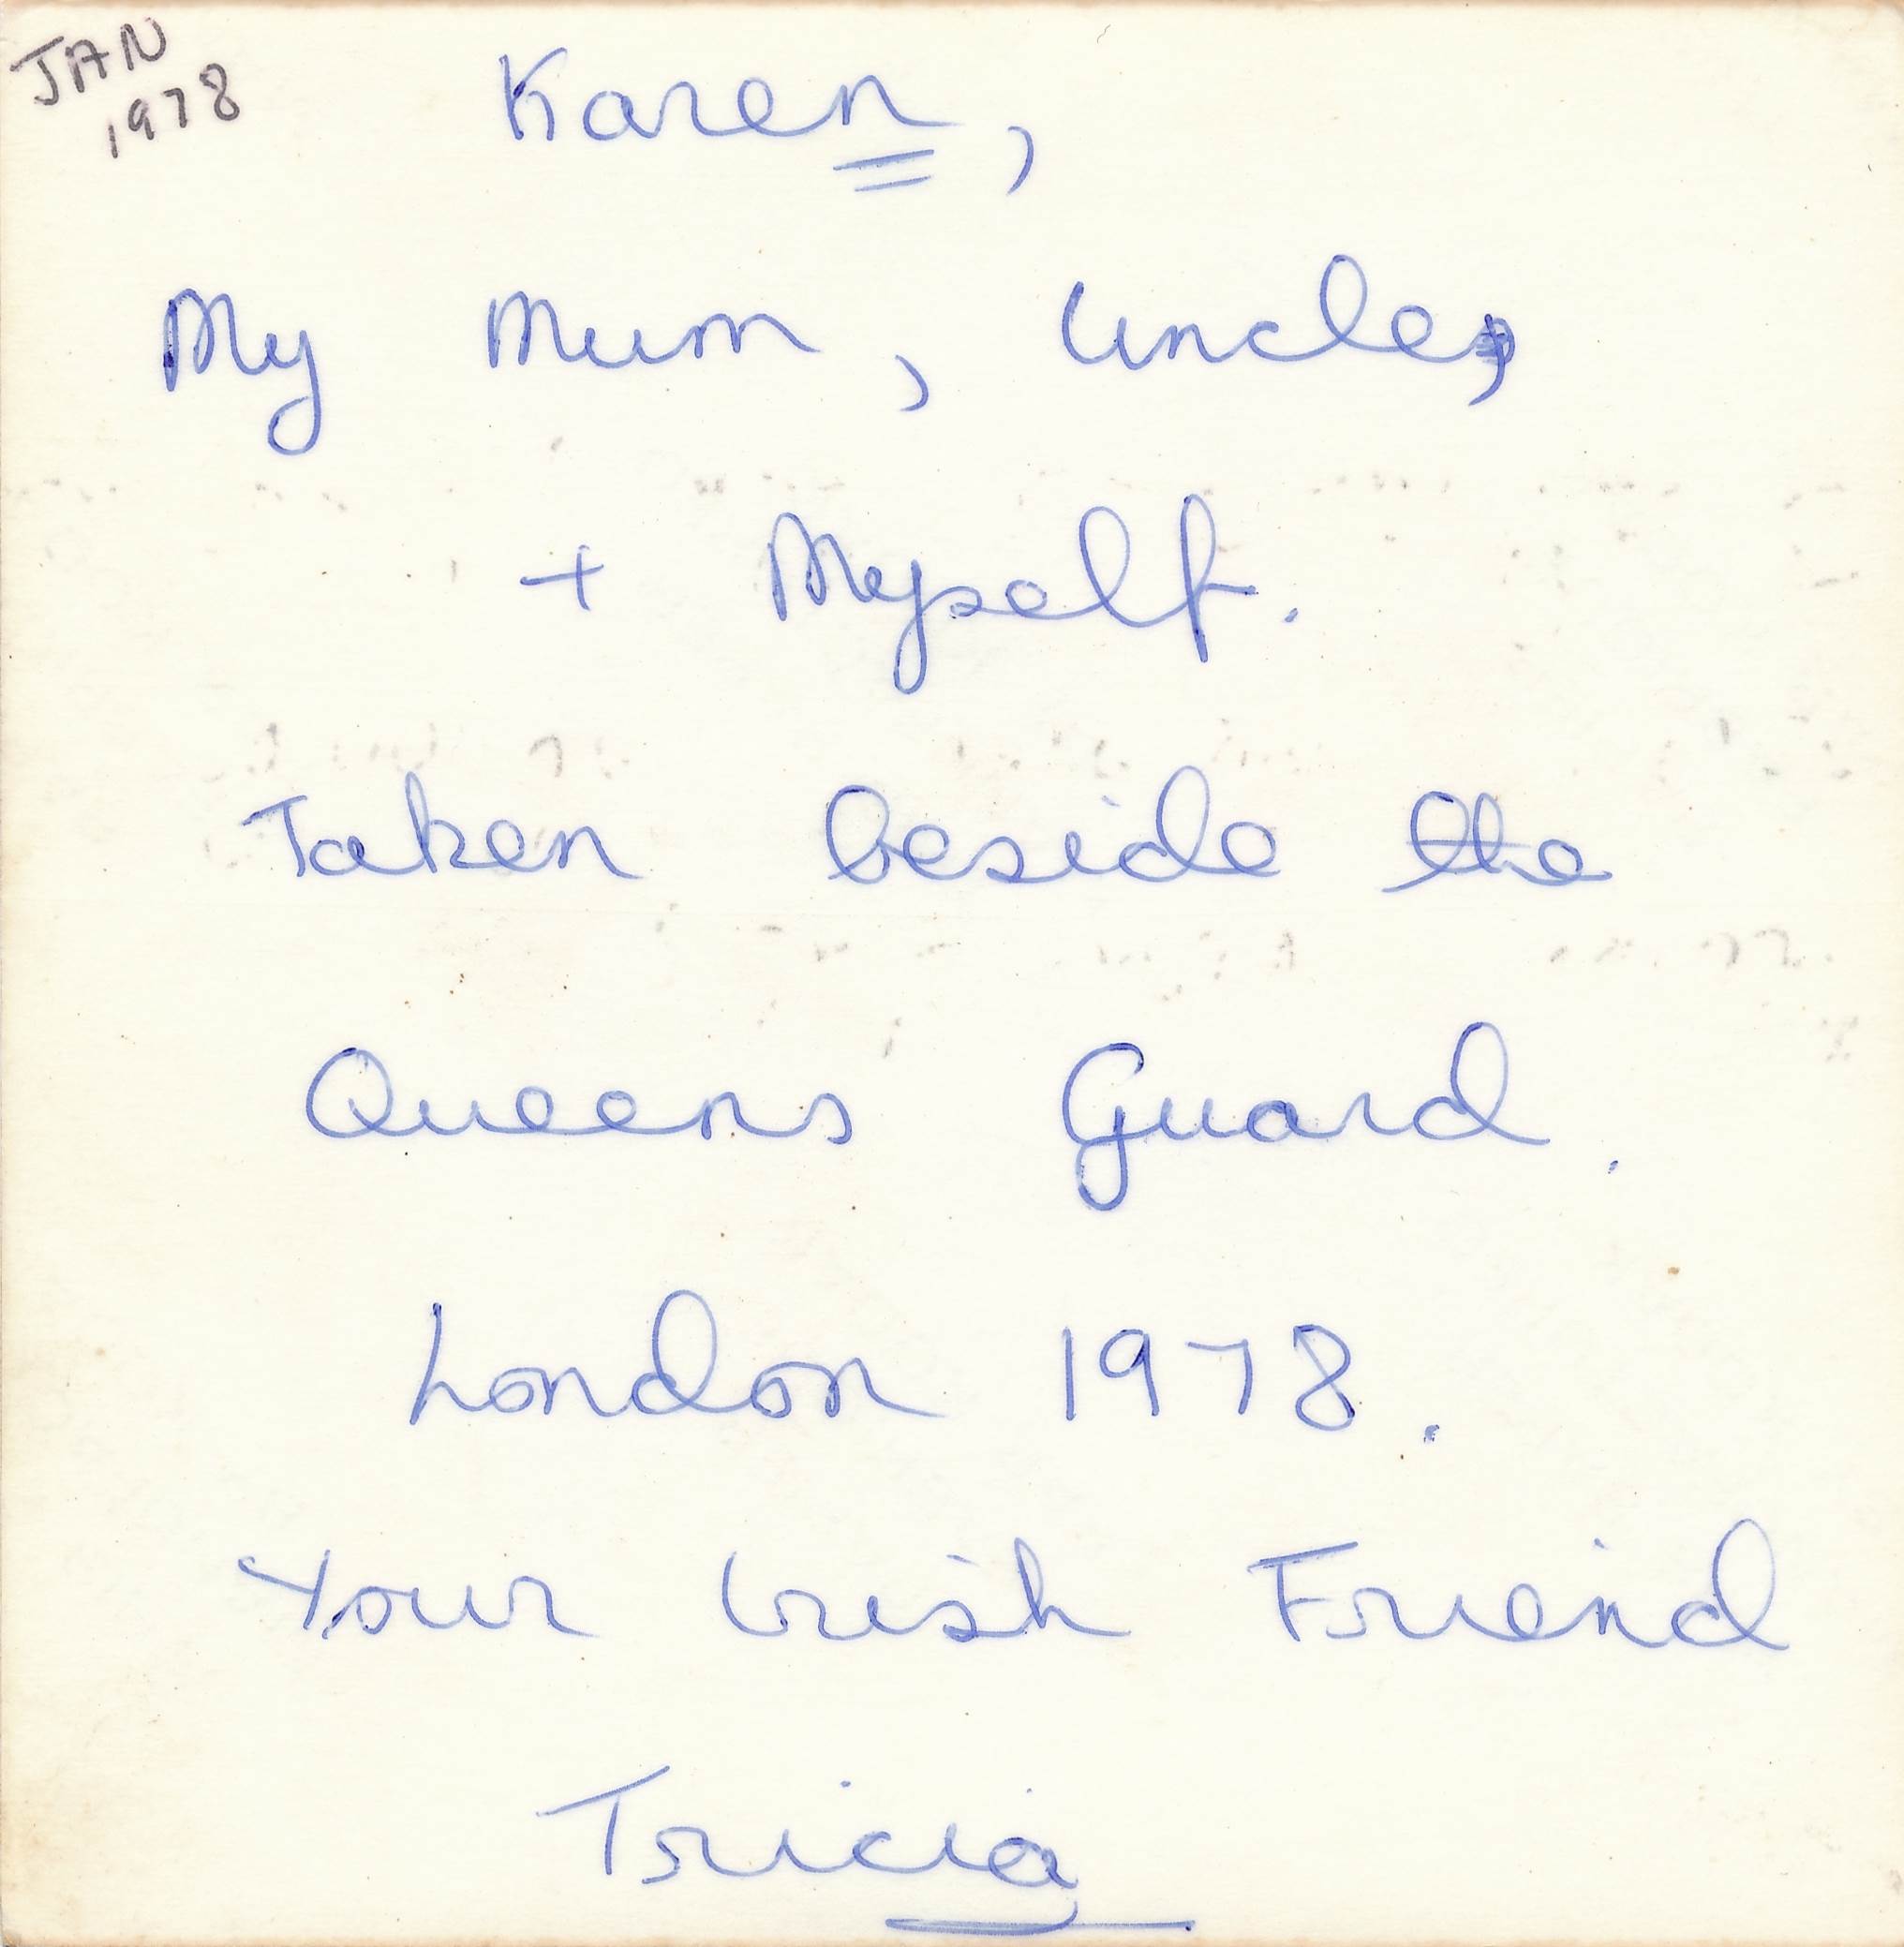 JAN
1978
Karen,
My Mum, Uncle,
+ Myself.
Taken beside the
Queens Guard.
London 1978.
Your Irish Friend
Tricia